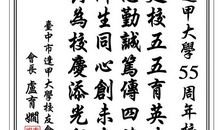 逢甲大學55周年校
建校五五育英
勤誠篤傳四
生同心創未
為校慶添
臺中市逢甲大學校友會
會長 盧育嫺